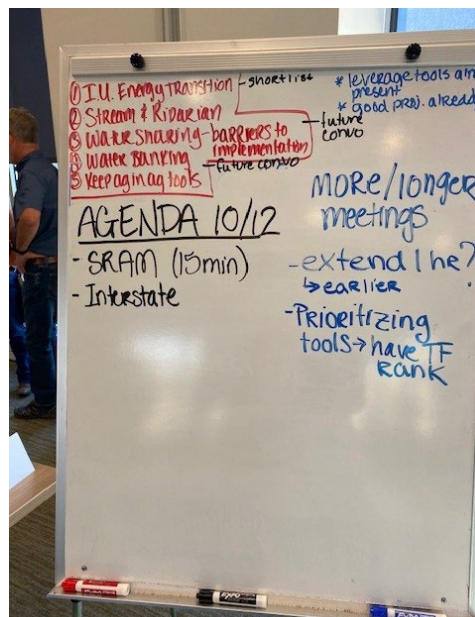 ① I.U. Energy Transition - shortlist
② Stream & Riparian
③ Water Sharing - barriers to implementation - future convo
④ Water Banking - future convo
⑤ Keep ag in ag tools
* leverage tools
present
* good proj. already
AGENDA 10/12
- SRAM (15min)
- Interstate
MORE/longer
meetings
- extend 1 hr?
↳ earlier
- Prioritizing
tools → have TF
rank
EXPO